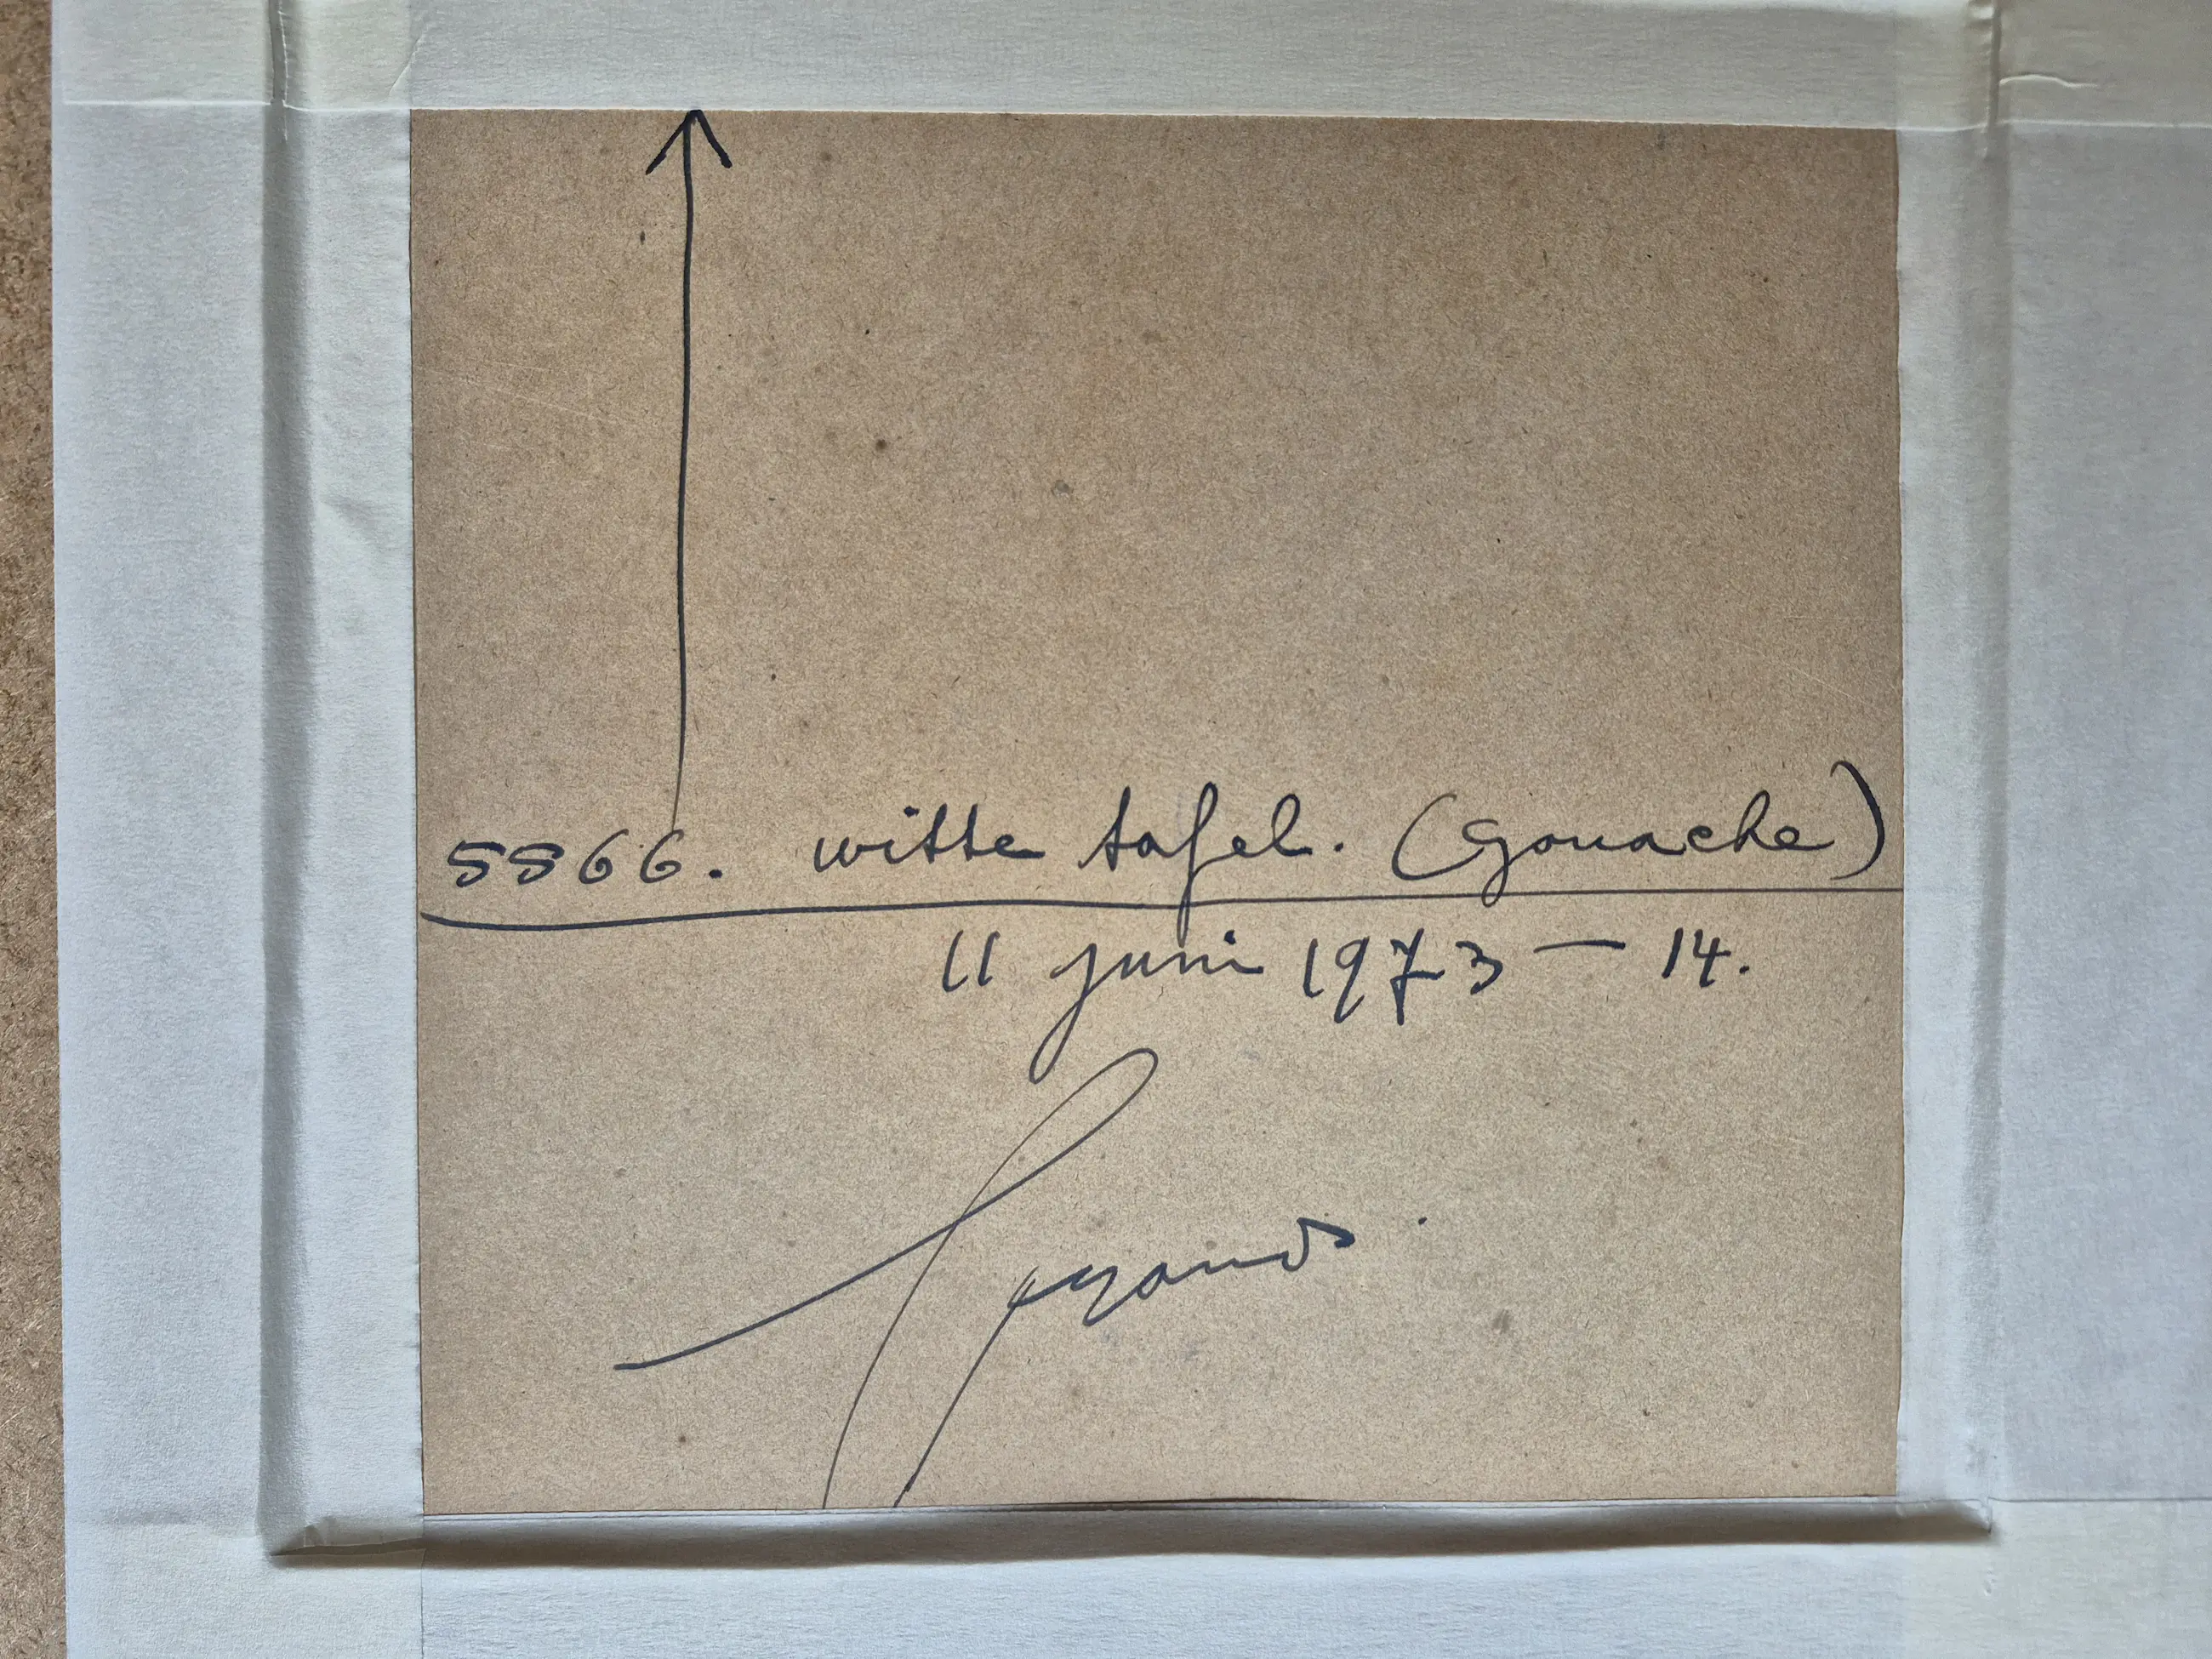 5866. witte tafel. (gouache)
11 juni 1973 — 14.